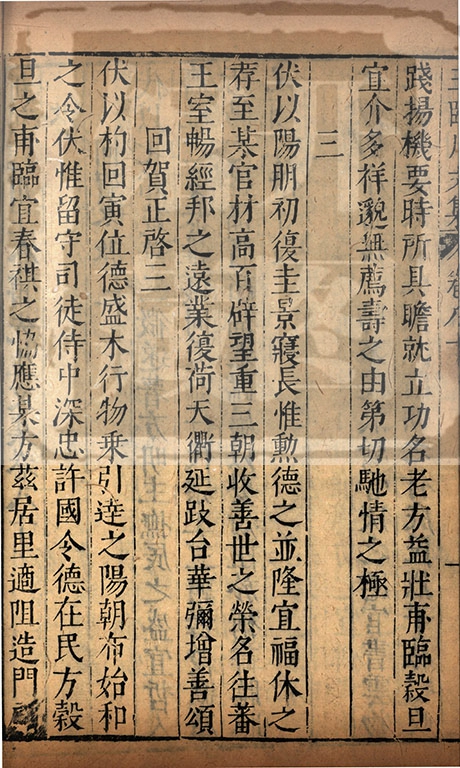 王臨川文集 卷八十
踐揚機要時所具瞻就立功名老方益壯再臨穀旦
宜介多祥邈無薦壽之由第切馳情之極
三
伏以陽朋初復圭景寖長惟勳德之並隆宜福休之
荐至某官材高百辟望重三朝收善世之榮名往蕃
王室暢經邦之遠業復荷天衢延跂台華彌增善頌
回賀正啓三
伏以杓回寅位德盛木行物乘引達之陽朝布始和
之令伏惟留守司徒侍中深忠許國令德在民方穀
旦之再臨宜春祺之恊應某方茲居里適阻造門